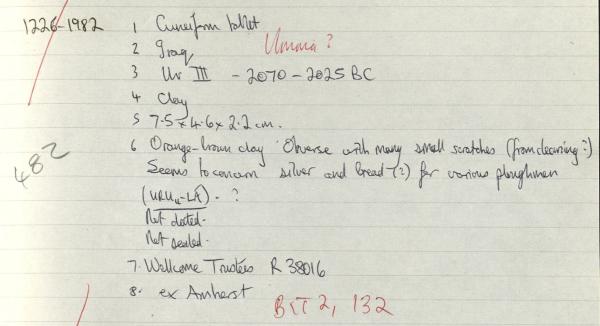 1226-1982 1 Cuneiform tablet
Umma?
2 Iraq
3 Ur III - 2070 - 2025 BC
4 Clay
5 7.5 x 4.6 x 2.2 cm.
482
6 Orange-brown clay Obverse with many small scratches (from cleaning?)
Seems to concern silver and bread (?) for various ploughmen
(URU₄-LÁ). ?
Not dated.
Not sealed.
7. Wellcome Trustees R 38016
8. ex Amherst
BCT 2, 132